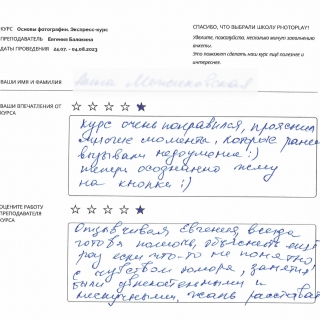 КУРС Основы фотографии. Экспресс-курс
ПРЕПОДАВАТЕЛЬ Евгения Балакина
ДАТЫ ПРОВЕДЕНИЯ 24.07. - 04.08.2023
СПАСИБО, ЧТО ВЫБРАЛИ ШКОЛУ PHOTOPLAY!
Уделите, пожалуйста, несколько минут заполнению
анкеты.
Это поможет сделать наш курс ещё полезнее и
интереснее.
ВАШИ ИМЯ И ФАМИЛИЯ
ВАШИ ВПЕЧАТЛЕНИЯ ОТ
КУРСА
Курс очень понравился, прояснил
многие моменты, которые ранее
вызывали недоумение :)
теперь осознанно жму
на кнопки :)
ОЦЕНИТЕ РАБОТУ
ПРЕПОДАВАТЕЛЯ
КУРСА
Отзывчивая Евгения, всегда
готова помочь, объяснить ещё
раз если что-то не понятно
с чувством юмора, занятия
были увлекательными и
нескучными, жаль расстават